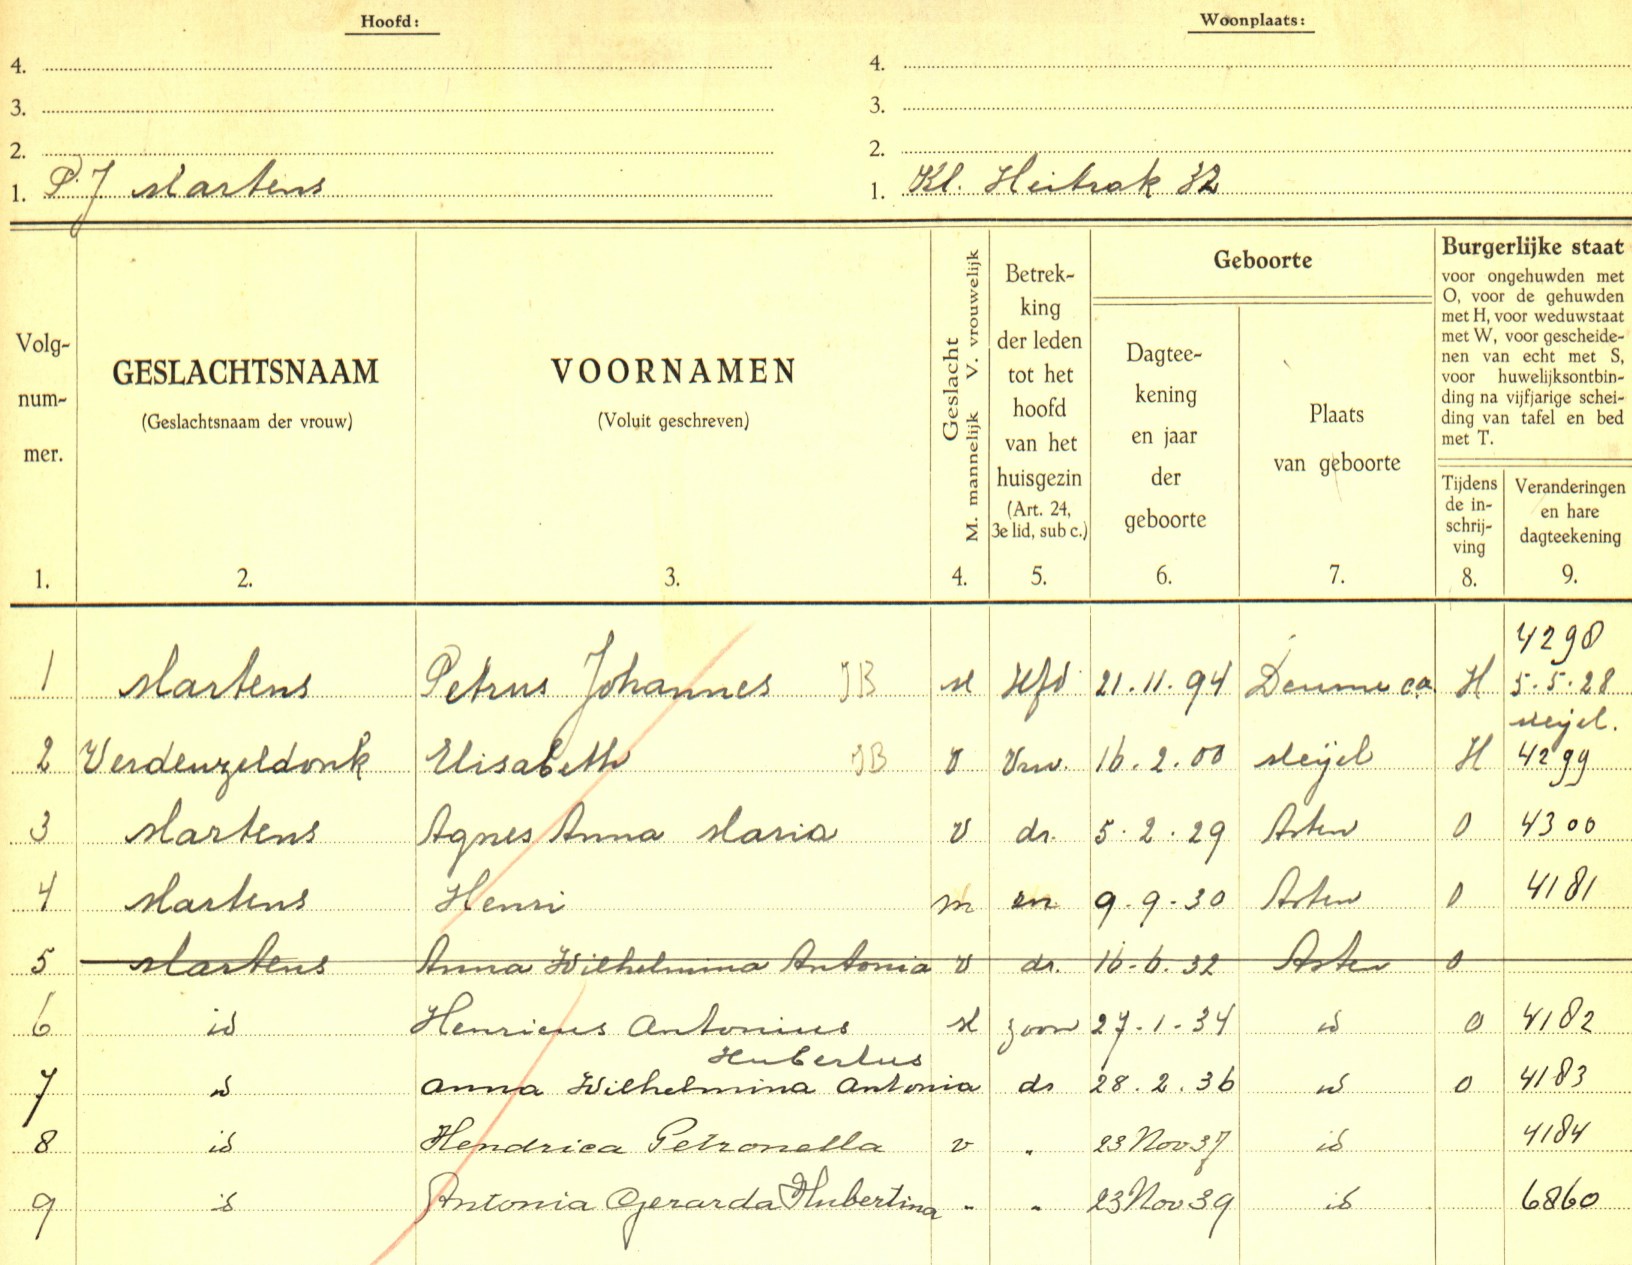 Hoofd:
4.
3.
2.
1. P. J Martens
Woonplaats:
4.
3.
2.
1. Kl. Heitrak 32
Volg-
num-
mer.
1.
GESLACHTSNAAM
(Geslachtsnaam der vrouw)
2.
VOORNAMEN
(Voluit geschreven)
3.
Geslacht
M. mannelijk V. vrouwelijk
4.
Betrek-
king
der leden
tot het
hoofd
van het
huisgezin
(Art. 24,
3e lid, sub c.)
5.
Geboorte
Dagtee-
kening
en jaar
der
geboorte
6.
Plaats
van geboorte
7.
Burgerlijke staat
voor ongehuwden met
O, voor de gehuwden
met H, voor weduwstaat
met W, voor gescheide-
nen van echt met S,
voor huwelijksontbin-
ding na vijfjarige schei-
ding van tafel en bed
met T.
Tijdens
de in-
schrij-
ving
8.
Veranderingen
en hare
dagteekening
9.
4298
1 Martens Petrus Johannes JB M Hfd 21.11.94 Deurne ca H 5.5.28
Meijel.
2 Verdeuzeldonk Elisabeth JB V Vrw. 16.2.00 Meijel H 4299
3 Martens Agnes Anna Maria V dr. 5.2.29 Asten O 4300
4 Martens Henri m zn 9.9.30 Asten O 4181
5 Martens Anna Wilhelmina Antonia V dr. 16.6.32 Asten O
6 id Henricus Antonius M zoon 27.1.34 id O 4182
Hubertus
7 id Anna Wilhelmina Antonia dr 28.2.36 id O 4183
8 id Hendrica Petronella v " 23 Nov 37 id 4184
9 id Antonia Gerarda Hubertina " " 23 Nov 39 id 6860